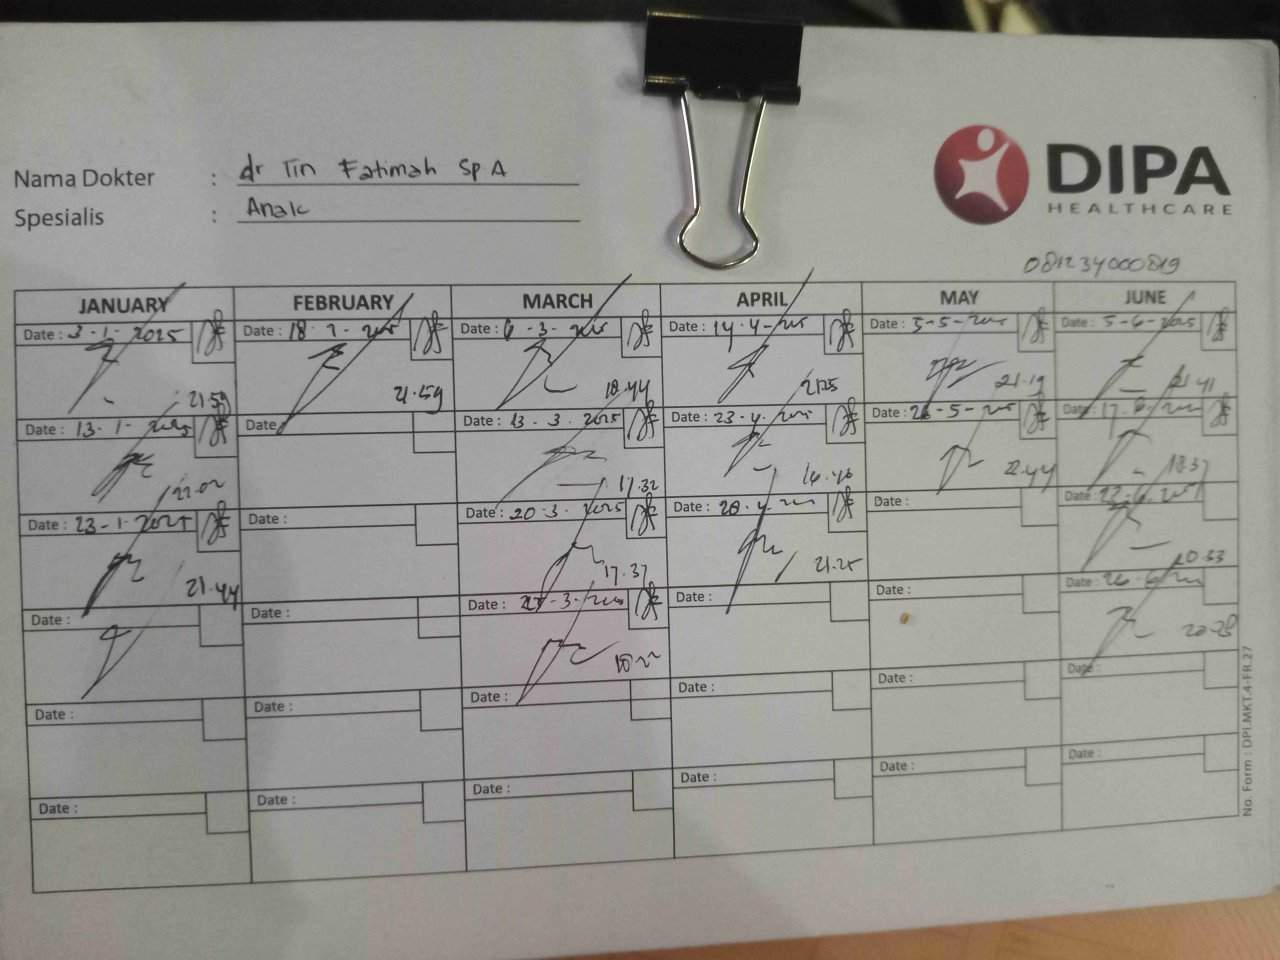 DIPA
HEALTHCARE
Nama Dokter : dr Tin Fatimah Sp A
Spesialis : Anak
081234000819
JANUARY FEBRUARY MARCH APRIL MAY JUNE
Date : 3-1-2025 Date : 18-2-2025 Date : 6-3-2025 Date : 14-4-2025 Date : 5-5-2025 Date : 5-6-2025
21.59 21.59 18.44 21.25 21.19 21.41
Date : 13-1-2025 Date : Date : 13-3-2025 Date : 23-4-2025 Date : 26-5-2025 Date : 17-6-2025
22.02 17.32 16.46 22.44 18.37
Date : 23-1-2025 Date : Date : 20-3-2025 Date : 28-4-2025 Date : Date :
21.44 17.37 21.25 20.33
Date : Date : Date : Date : Date : Date :
18.22 20.28
Date : Date : Date : Date : Date : Date :
Date : Date : Date : Date : Date : Date :
No. Form : DPI.MKT.4-FR.27